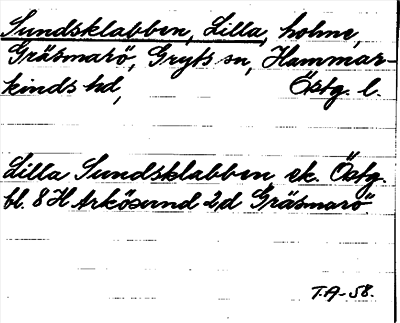 Sundsklabben, Lilla, holme,
Gräsmarö, Gryts sn, Hammar-
kinds hd, Östg. l.
Lilla Sundsklabben ek. Östg.
bl. 8 H Arkösund 2,d Gräsmarö.
T.A-58.